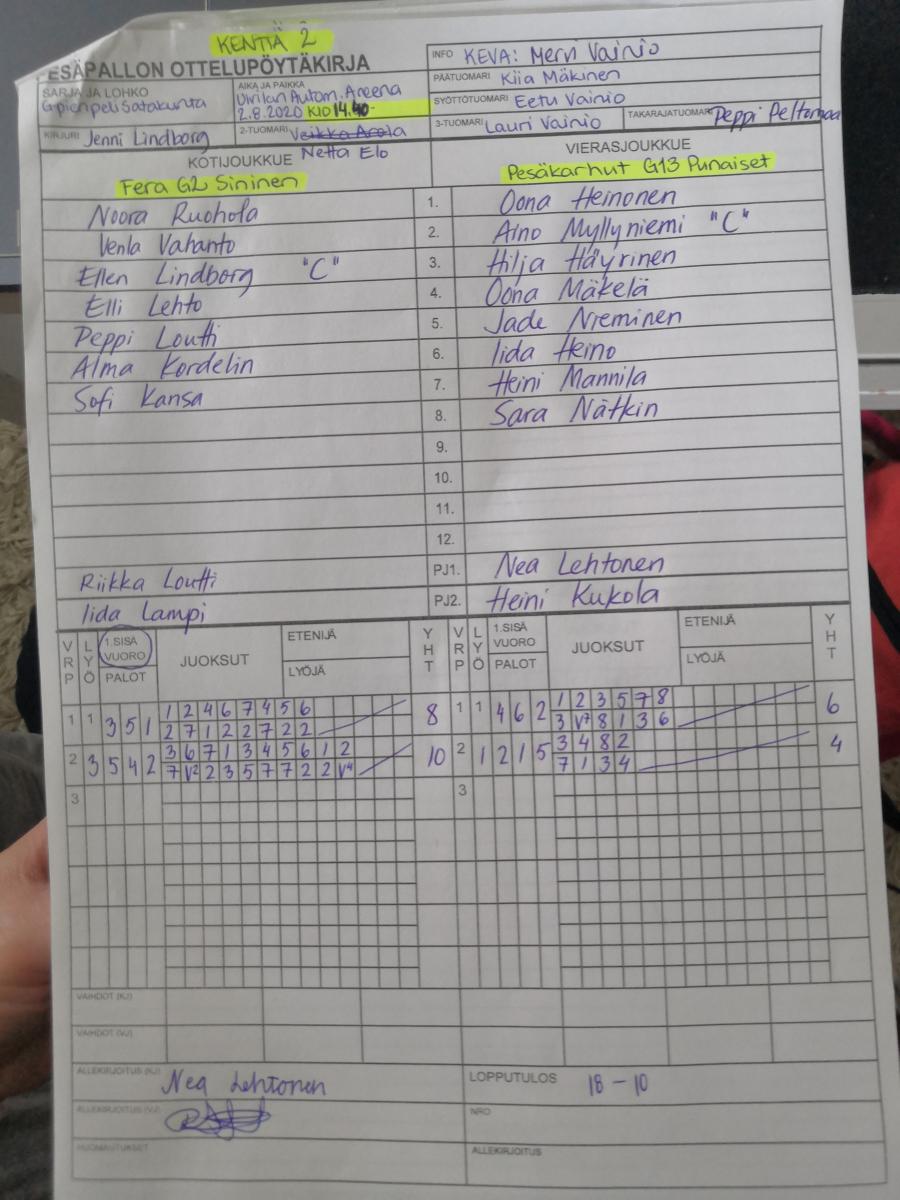 KENTTÄ 2
PESÄPALLON OTTELUPÖYTÄKIRJA
INFO KEVA: Mervi Vainio
PÄÄTUOMARI Kiia Mäkinen
SARJA JA LOHKO G pienpeli Satakunta
AIKA JA PAIKKA Ulvilan Autom. Areena 2.8.2020 KLO 14.40
SYÖTTÖTUOMARI Eetu Vainio
KIRJURI Jenni Lindborg
2-TUOMARI Veikko Arola
3-TUOMARI Lauri Vainio
TAKARAJATUOMARI Peppi Peltomaa
KOTIJOUKKUE Netta Elo
VIERASJOUKKUE
Fera G2 Sininen
Pesäkarhut G13 Punaiset
Noora Ruohola 1. Oona Heinonen
Venla Vahanto 2. Aino Myllyniemi "C"
Ellen Lindborg "C" 3. Hilja Häyrinen
Elli Lehto 4. Oona Mäkelä
Peppi Loutti 5. Jade Nieminen
Alma Kordelin 6. Iida Heino
Sofi Kansa 7. Heini Mannila
8. Sara Nätkin
9.
10.
11.
12.
Riikka Loutti PJ1. Nea Lehtonen
Iida Lampi PJ2. Heini Kukola
VRP LYÖ 1.SISÄ VUORO PALOT JUOKSUT ETENIJÄ LYÖJÄ YHT VRP LYÖ 1.SISÄ VUORO PALOT JUOKSUT ETENIJÄ LYÖJÄ YHT
1 1 3 5 1 1 2 4 6 7 4 5 6 8 1 1 4 6 2 1 2 3 5 7 8 6
2 7 1 2 2 7 2 2 3 V7 8 1 3 6
2 3 5 4 2 3 6 7 1 3 4 5 6 1 2 10 2 1 2 1 5 3 4 8 2 4
7 V2 2 3 5 7 7 2 2 V4 7 1 3 4
3 3
VAIHDOT (KJ)
VAIHDOT (VJ)
ALLEKIRJOITUS (KJ) Nea Lehtonen LOPPUTULOS 18 - 10
ALLEKIRJOITUS (VJ) NRO
HUOMAUTUKSET ALLEKIRJOITUS